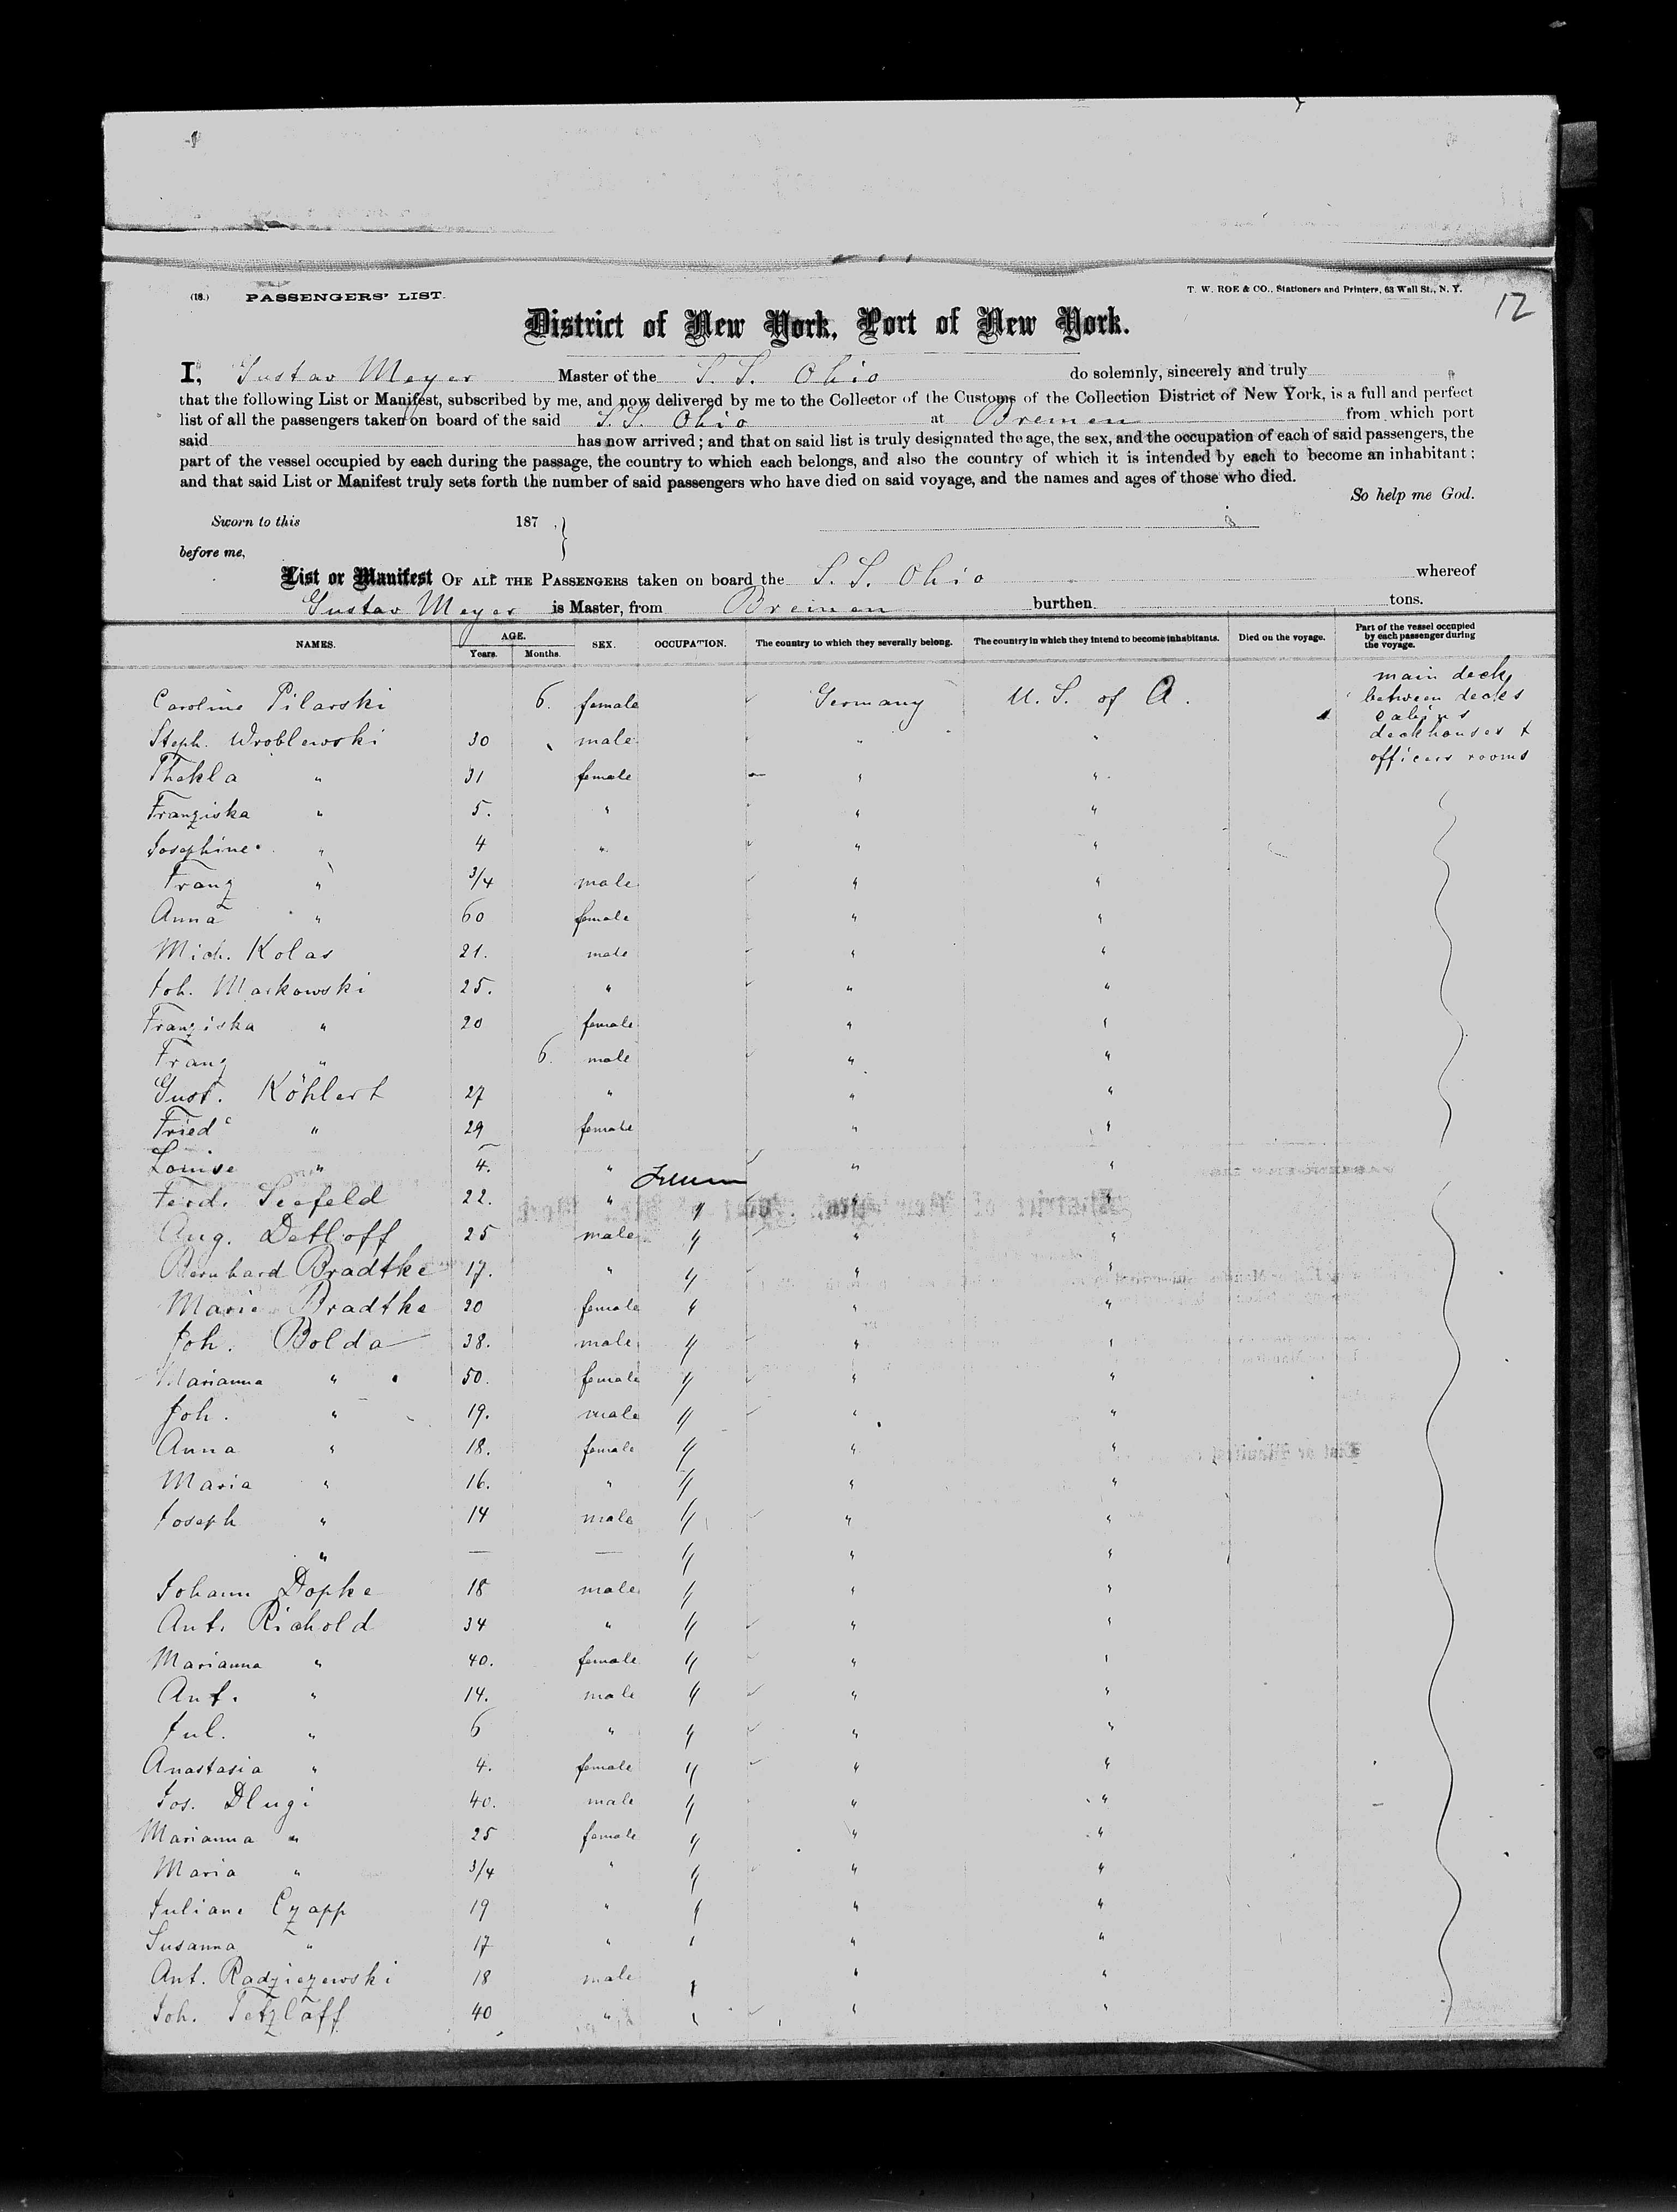 12
(18.) PASSENGERS' LIST.
T. W. ROE & CO., Stationers and Printers, 63 Wall St., N. Y.
District of New York, Port of New York.
I, Gustav Meyer Master of the S. S. Ohio do solemnly, sincerely and truly
that the following List or Manifest, subscribed by me, and now delivered by me to the Collector of the Customs of the Collection District of New York, is a full and perfect
list of all the passengers taken on board of the said S. S. Ohio at Bremen from which port
said has now arrived; and that on said list is truly designated the age, the sex, and the occupation of each of said passengers, the
part of the vessel occupied by each during the passage, the country to which each belongs, and also the country of which it is intended by each to become an inhabitant;
and that said List or Manifest truly sets forth the number of said passengers who have died on said voyage, and the names and ages of those who died.
So help me God.
Sworn to this 187
before me,
List or Manifest OF ALL THE PASSENGERS taken on board the S. S. Ohio whereof
Gustav Meyer is Master, from Bremen burthen tons.
NAMES. AGE. Years. Months. SEX. OCCUPATION. The country to which they severally belong. The country in which they intend to become inhabitants. Died on the voyage. Part of the vessel occupied by each passenger during the voyage.
main deck,
between decks
cabins
deckhouses &
officers rooms
Caroline Pilarski 6. female Germany U. S. of A.
Steph. Wroblewski 30 male " "
Thekla " 31 female " "
Franziska " 5. " " "
Josephine " 4 " " "
Franz " 3/4 male " "
Anna " 60 female " "
Mich. Kolas 21. male " "
Joh. Markowski 25. " " "
Franziska " 20 female " "
Franz " 6. male " "
Gust. Köhlert 27 " " "
Fried^c " 29 female " "
Louise " 4. " " "
Ferd. Seefeld 22. " " " "
Aug. Detloff 25 male " " "
Bernhard Bradtke 17. " " " "
Marie Bradtke 20 female " " "
Joh. Bolda 38. male " " "
Marianna " 50. female " " "
Joh. " 19. male " " "
Anna " 18. female " " "
Maria " 16. " " " "
Joseph " 14 male " " "
" — — " " "
Johann Dopke 18 male " " "
Ant. Richold 34 " " " "
Marianna " 40. female " " "
Ant. " 14. male " " "
Jul. " 6 " " " "
Anastasia " 4. female " " "
Jos. Dlugi 40. male " " "
Marianna " 25 female " " "
Maria " 3/4 " " " "
Juliane Czapp 19 " " " "
Susanna " 17 " " " "
Ant. Radziezewski 18 male " " "
Joh. Tetzlaff 40 " " " "